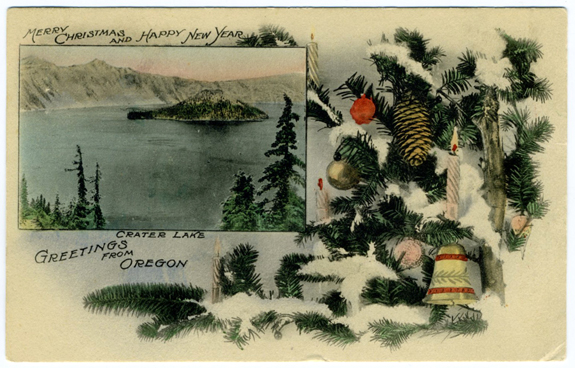 MERRY CHRISTMAS AND HAPPY NEW YEAR
CRATER LAKE
GREETINGS
FROM
OREGON